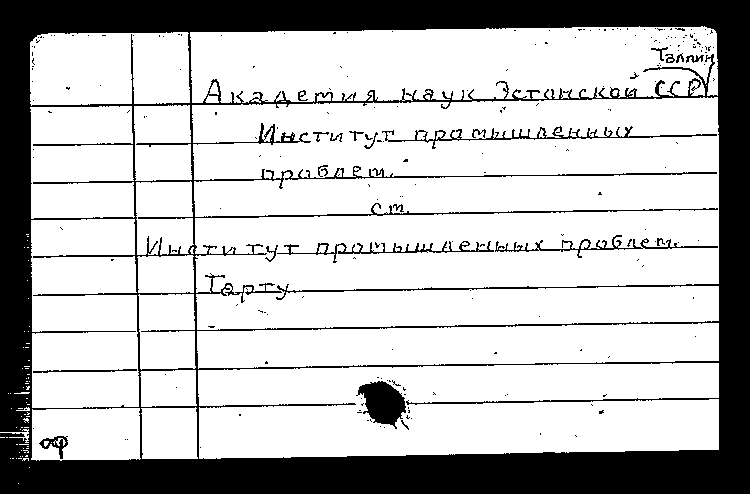 Таллин
Академия наук Эстонской ССР
Институт промышленных
проблем.
ст.
Институт промышленных проблем.
Тарту.
оф